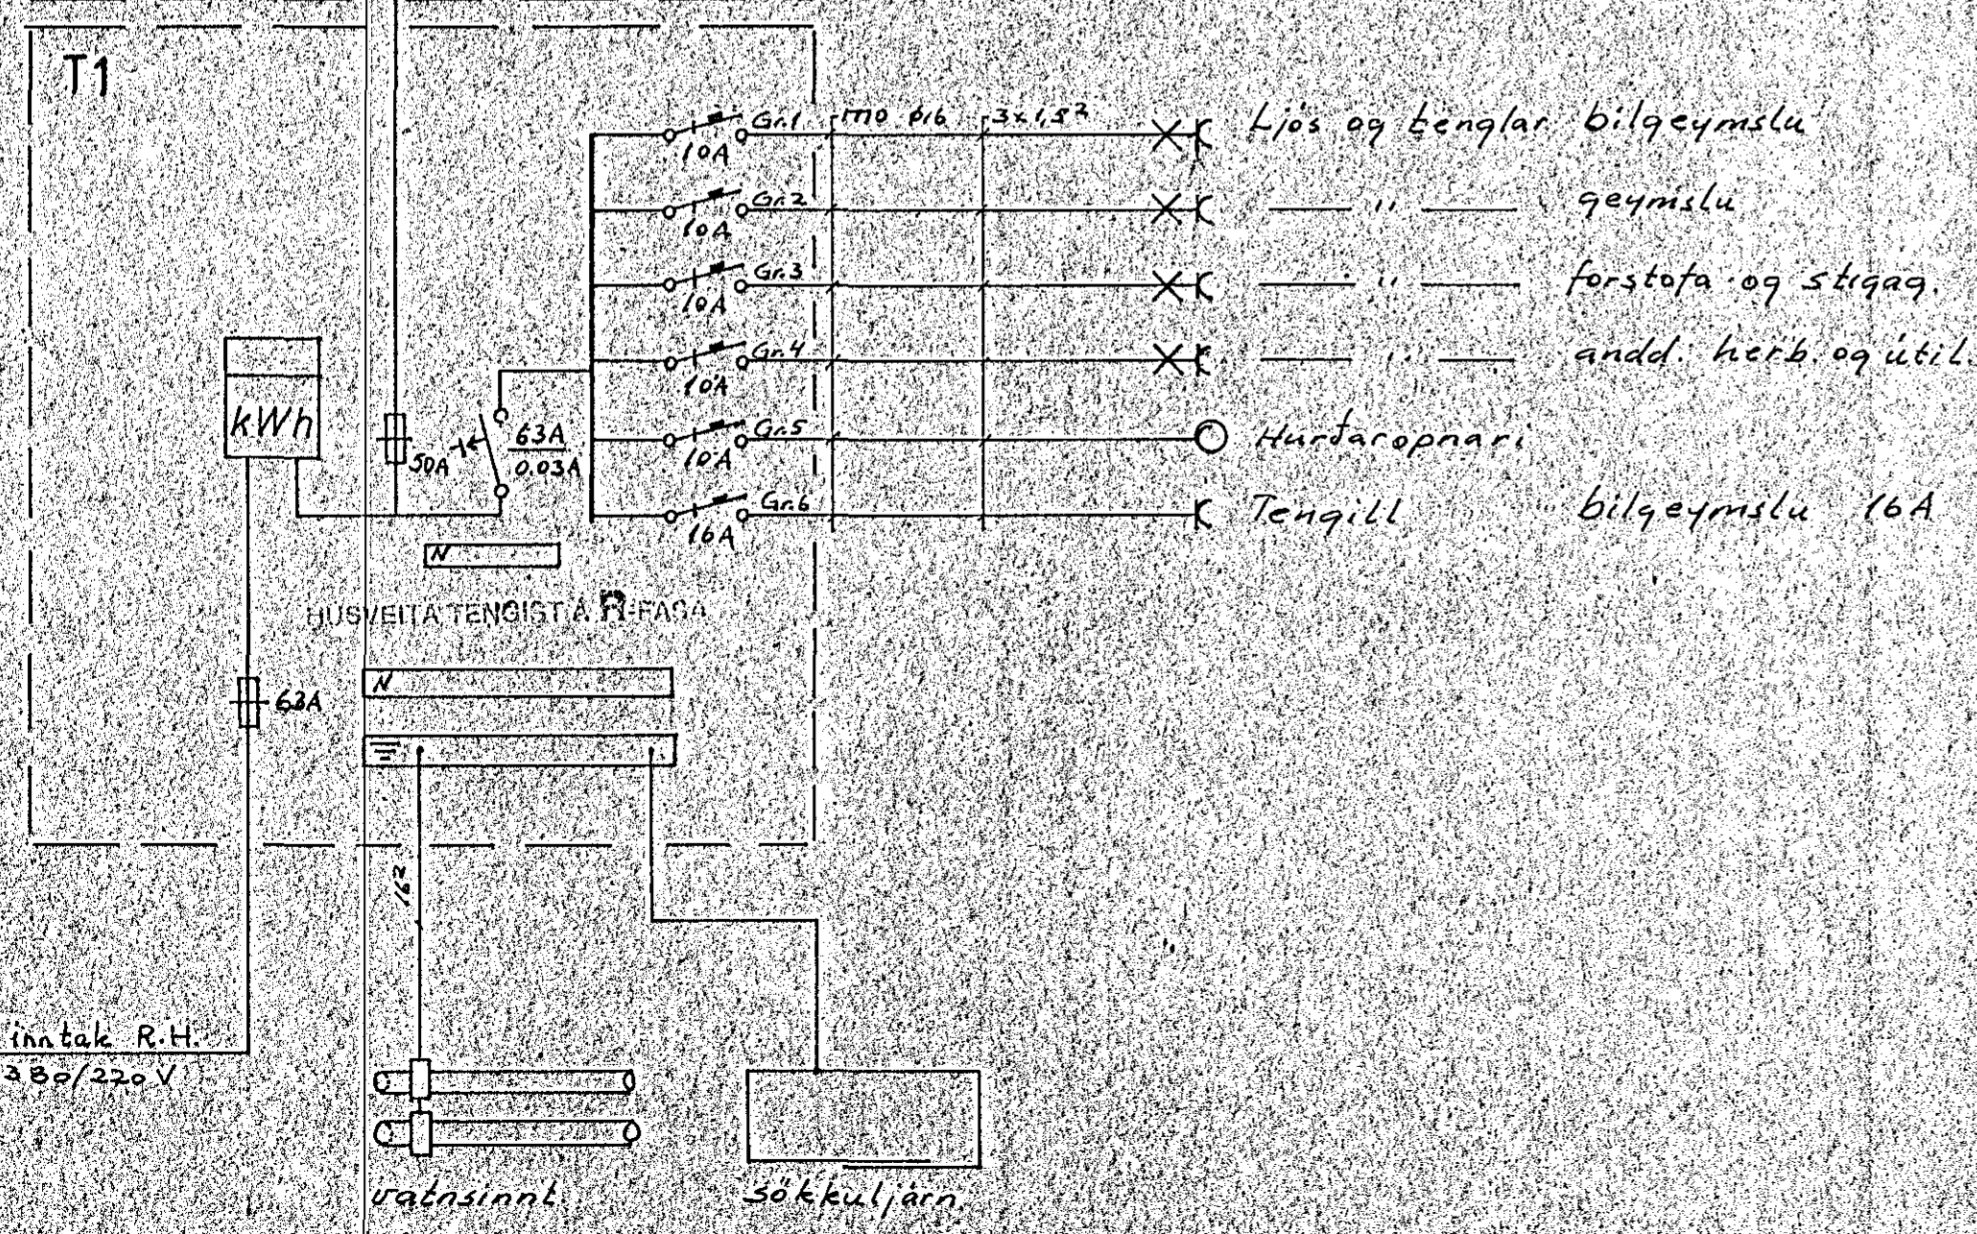 T1
Gr.1 10A m0 ø16 3x1,5² Ljós og tenglar bílgeymslu
Gr.2 10A — " — geymslu
Gr.3 10A — " — forstofa og stigag.
Gr.4 10A — " — andd. herb. og útil.
Gr.5 10A Hurðaropnari
Gr.6 16A Tengill bílgeymslu 16A
kWh
50A
63A
0.03A
N
HUSVEITA TENGIST Á R-FASA
N
63A
16²
inntak R.H.
380/220V
vatnsinnt.
sökkuljárn